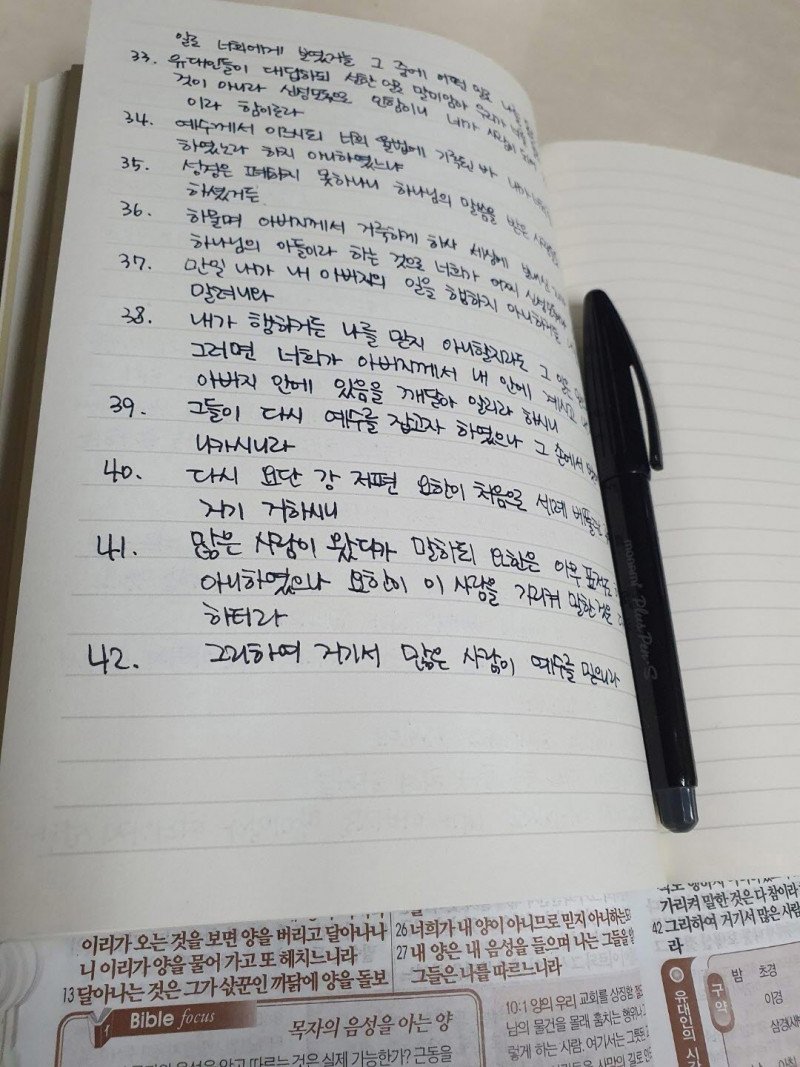 일로 너희에게 보였거늘 그 중에 어떤 일로 나를
33. 유대인들이 대답하되 선한 일로 말미암아 우리가 너를
것이 아니라 신성모독으로 인함이니 네가 사람이 되어
이라 함이로라
34. 예수께서 이르시되 너희 율법에 기록된 바 내가
하였노라 하지 아니하였느냐
35. 성경은 폐하지 못하나니 하나님의 말씀을 받은
하셨거든
36. 하물며 아버지께서 거룩하게 하사 세상에
하나님의 아들이라 하는 것으로 너희가 어찌
37. 만일 내가 내 아버지의 일을 행하지 아니하거든
말려니와
38. 내가 행하거든 나를 믿지 아니할지라도 그 일은
그러면 너희가 아버지께서 내 안에 계시고
아버지 안에 있음을 깨달아 알리라 하시니
39. 그들이 다시 예수를 잡고자 하였으나 그 손에서
나가시니라
40. 다시 요단 강 저편 요한이 처음으로 세례 베풀던
거기 거하시니
41. 많은 사람이 왔다가 말하되 요한은 아무 표적도
아니하였으나 요한이 이 사람을 가리켜 말한 것은
하더라
42. 그리하여 거기서 많은 사람이 예수를 믿으니라
monami Plus Pen S
이리가 오는 것을 보면 양을 버리고 달아나나
니 이리가 양을 물어 가고 또 헤치느니라
13 달아나는 것은 그가 삯꾼인 까닭에 양을 돌보
Bible focus
목자의 음성을 아는 양
음성을 알고 따르는 것은 실제 가능한가? 근동을
26 너희가 내 양이 아니므로 믿지 아니하는도
27 내 양은 내 음성을 들으며 나는 그들을 알
그들은 나를 따르느니라
10:1 양의 우리 교회를 상징함
님의 물건을 몰래 훔치는
렇게 하는 사람. 여기서는
가리켜 말한 것은 다 참이라
42 그리하여 거기서 많은 사람
라
유대인의 시간
구약
밤 초경
이경